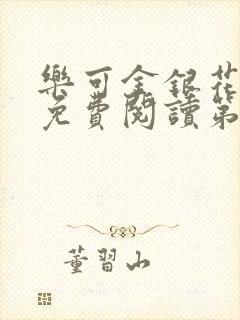 樂可金銀花
免費閱讀第
董習山